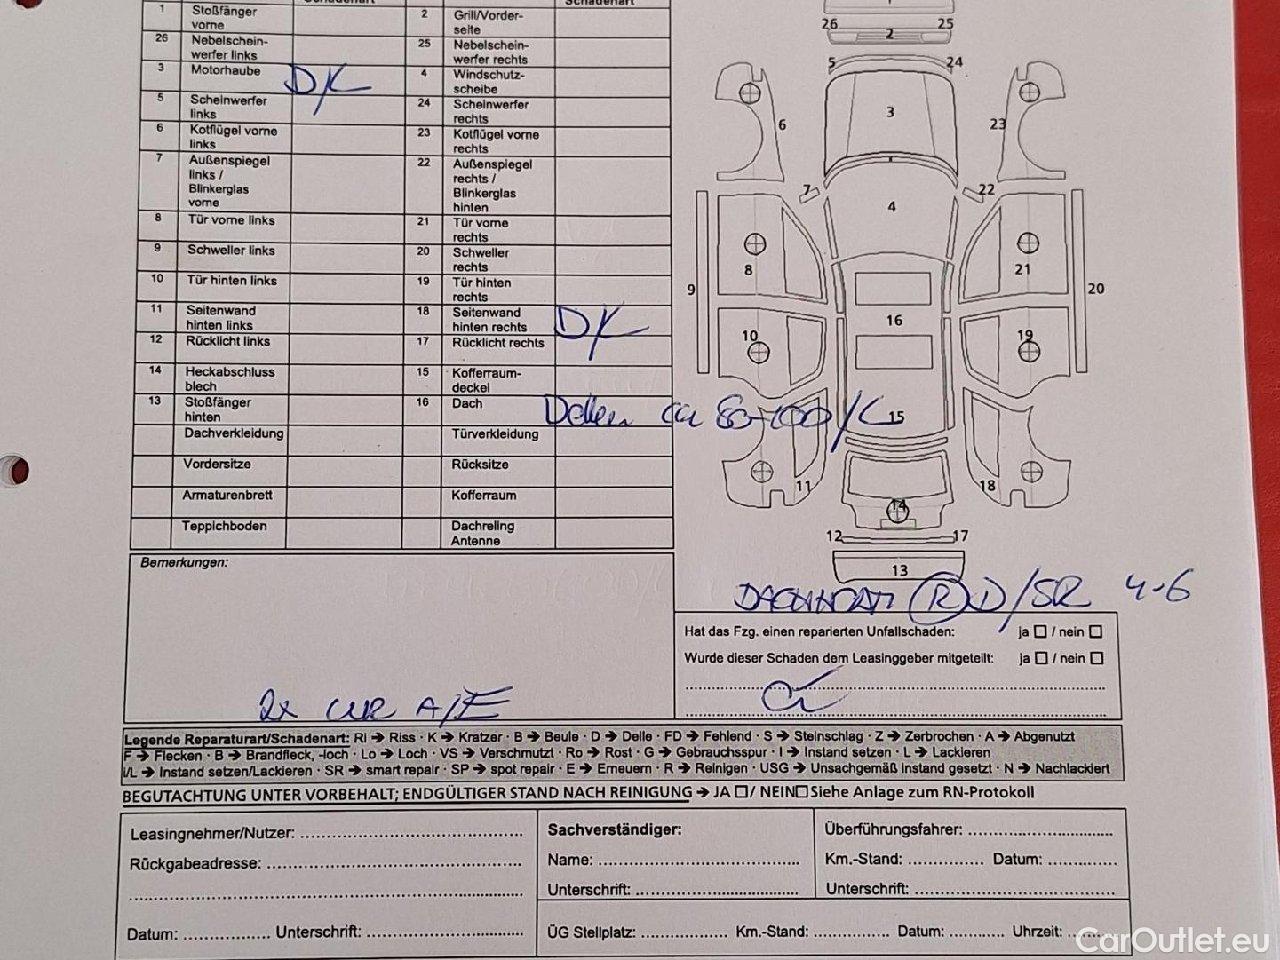 Schadenart
Schadenart
1 Stoßfänger vorne
2 Grill/Vorder-
seite
26 Nebelschein-
werfer links
25 Nebelschein-
werfer rechts
3 Motorhaube D/L
4 Windschutz-
scheibe
5 Scheinwerfer
links
24 Scheinwerfer
rechts
6 Kotflügel vorne
links
23 Kotflügel vorne
rechts
7 Außenspiegel
links /
Blinkerglas
vorne
22 Außenspiegel
rechts /
Blinkerglas
hinten
8 Tür vorne links
21 Tür vorne
rechts
9 Schweller links
20 Schweller
rechts
10 Tür hinten links
19 Tür hinten
rechts
11 Seitenwand
hinten links
18 Seitenwand
hinten rechts D/L
12 Rücklicht links
17 Rücklicht rechts
14 Heckabschluss
blech
15 Kofferraum-
deckel
13 Stoßfänger
hinten
16 Dach Dellen ca 80-100/L
Dachverkleidung
Türverkleidung
Vordersitze
Rücksitze
Armaturenbrett
Kofferraum
Teppichboden
Dachreling
Antenne
1
26 25
2
5 24
3
6 23
7 22
4
8 21
9 20
16
10 19
15
11 18
14
12 17
13
Bemerkungen:
2x A/E
R D/SR 4-6
Hat das Fzg. einen reparierten Unfallschaden: ja ☐ / nein ☐
Wurde dieser Schaden dem Leasinggeber mitgeteilt: ja ☐ / nein ☐
Legende Reparaturart/Schadenart: RI ➔ Riss · K ➔ Kratzer · B ➔ Beule · D ➔ Delle · FD ➔ Fehlend · S ➔ Steinschlag · Z ➔ Zerbrochen · A ➔ Abgenutzt
F ➔ Flecken · B ➔ Brandfleck, -loch · Lo ➔ Loch · VS ➔ Verschmutzt · Ro ➔ Rost · G ➔ Gebrauchsspur · I ➔ Instand setzen · L ➔ Lackieren
I/L ➔ Instand setzen/Lackieren · SR ➔ smart repair · SP ➔ spot repair · E ➔ Erneuern · R ➔ Reinigen · USG ➔ Unsachgemäß instand gesetzt · N ➔ Nachlackiert
BEGUTACHTUNG UNTER VORBEHALT; ENDGÜLTIGER STAND NACH REINIGUNG ➔ JA ☐ / NEIN☐ Siehe Anlage zum RN-Protokoll
Leasingnehmer/Nutzer:
Rückgabeadresse:
Datum: Unterschrift:
Sachverständiger:
Name:
Unterschrift:
Überführungsfahrer:
Km.-Stand: Datum:
Unterschrift:
ÜG Stellplatz: Km.-Stand: Datum: Uhrzeit:
CarOutlet.eu